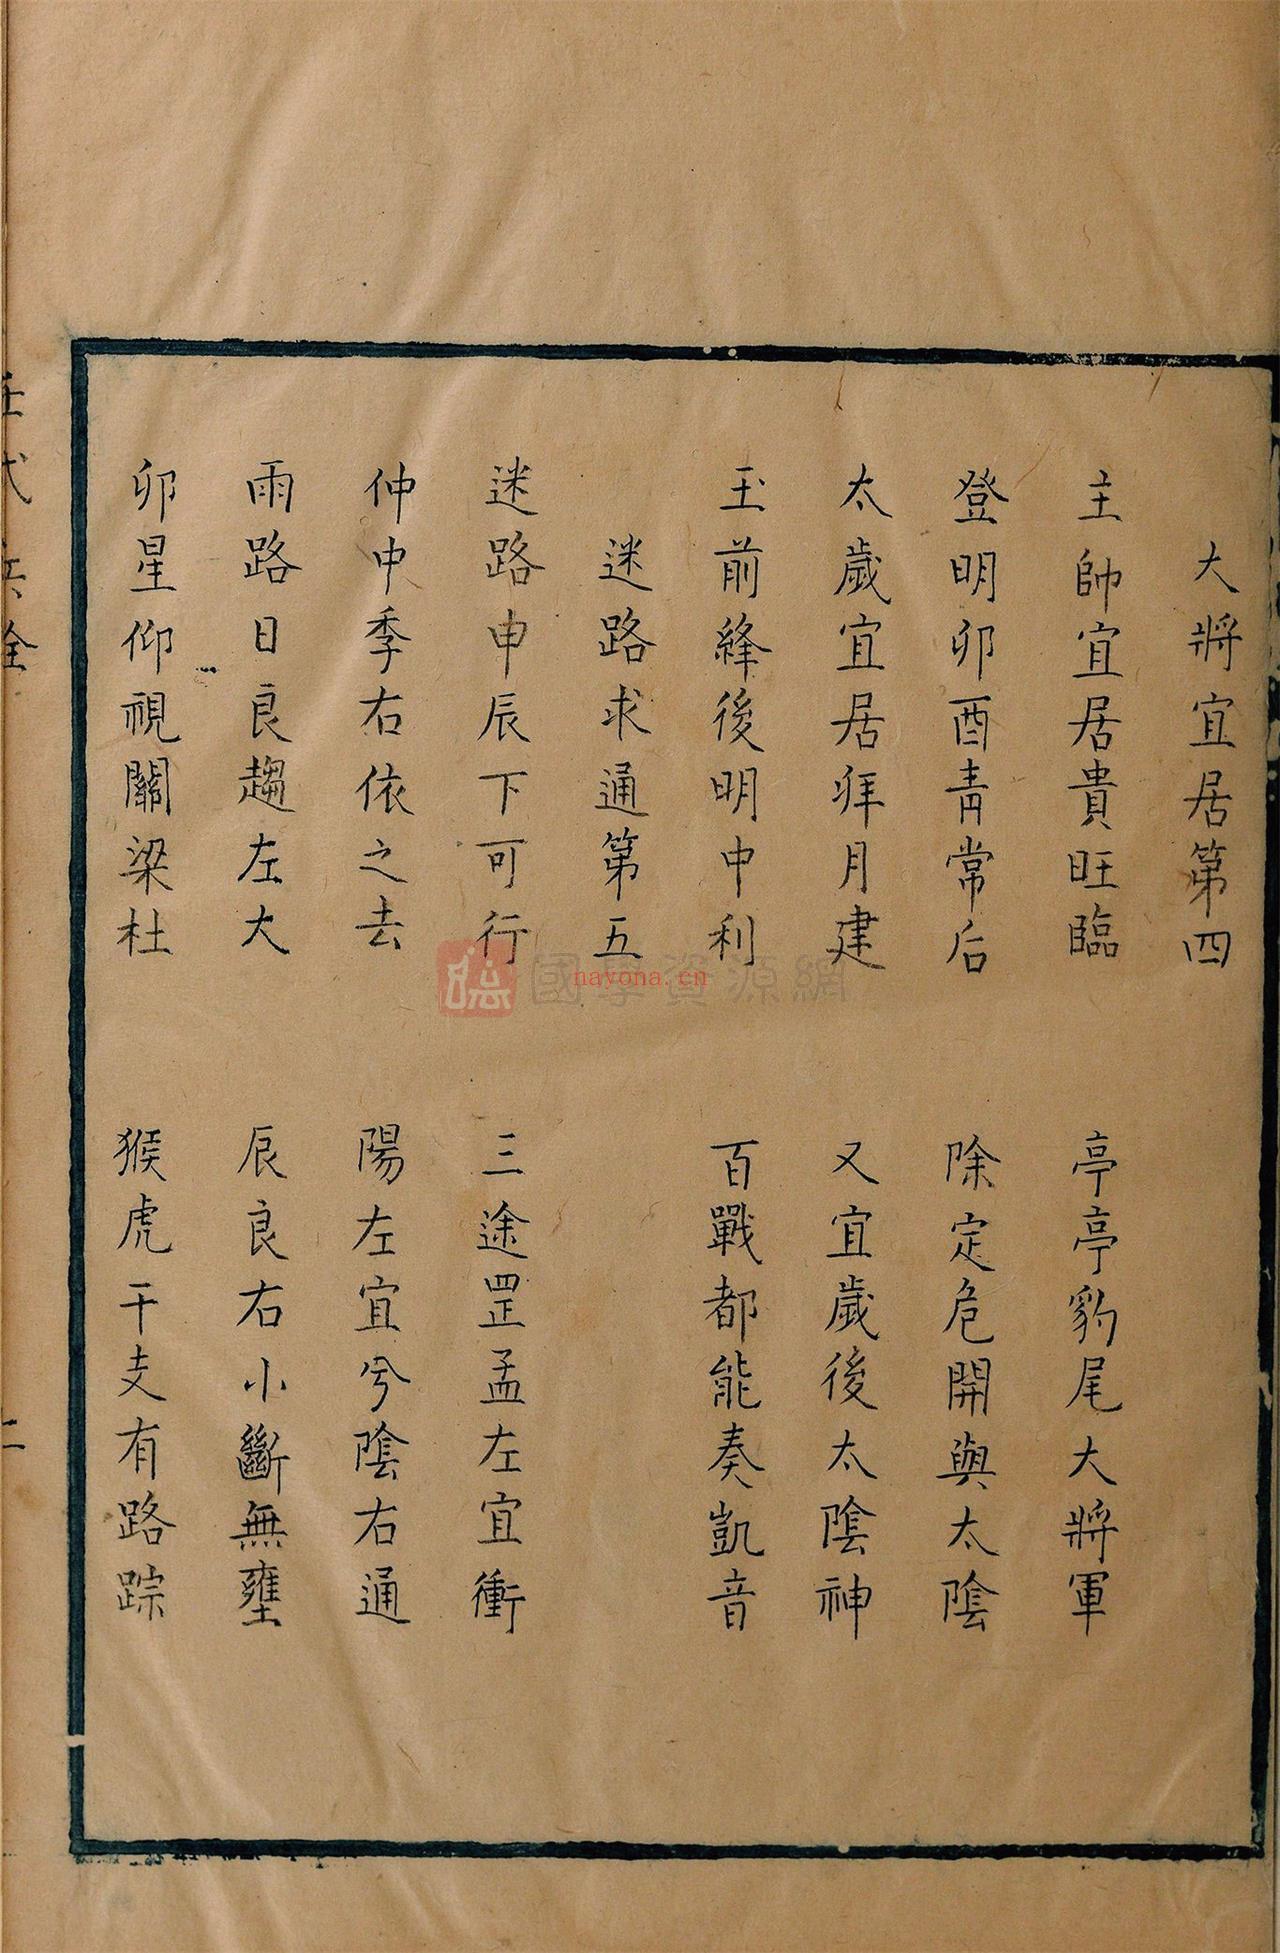 大將宜居第四
主帥宜居貴旺臨　亭亭豹尾大將軍
登明卯酉青常后　除定危開與太陰
太歲宜居拜月建　又宜歲後太陰神
玉前絳後明中利　百戰都能奏凱音
迷路求通第五
迷路申辰下可行　三途罡孟左宜衝
仲中季右依之去　陽左宜兮陰右通
雨路日良趨左大　辰良右小斷無壅
卯星仰視關梁杜　猴虎干支有路踪
國學資源網
nayona.cn